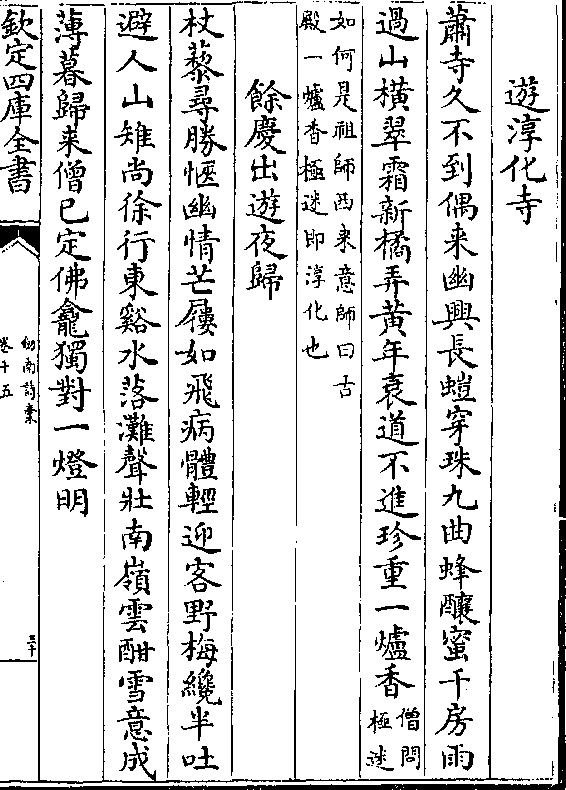 遊淳化寺
蕭寺久不到偶来幽興長螘穿珠九曲蜂釀蜜千房雨
過山横翠霜新橘弄黄年衰道不進珍重一爐香
僧問
極迷
如何是祖師西来意師曰古
殿一爐香極迷即淳化也
餘慶出遊夜歸
杖藜尋勝愜幽情芒屨如飛病體輕迎客野梅纔半吐
避人山雉尚徐行東谿水落灘聲壯南嶺雲酣雪意成
薄暮歸来僧已定佛龕獨對一燈明
欽定四庫全書
劒南詩稾
卷十五
三十